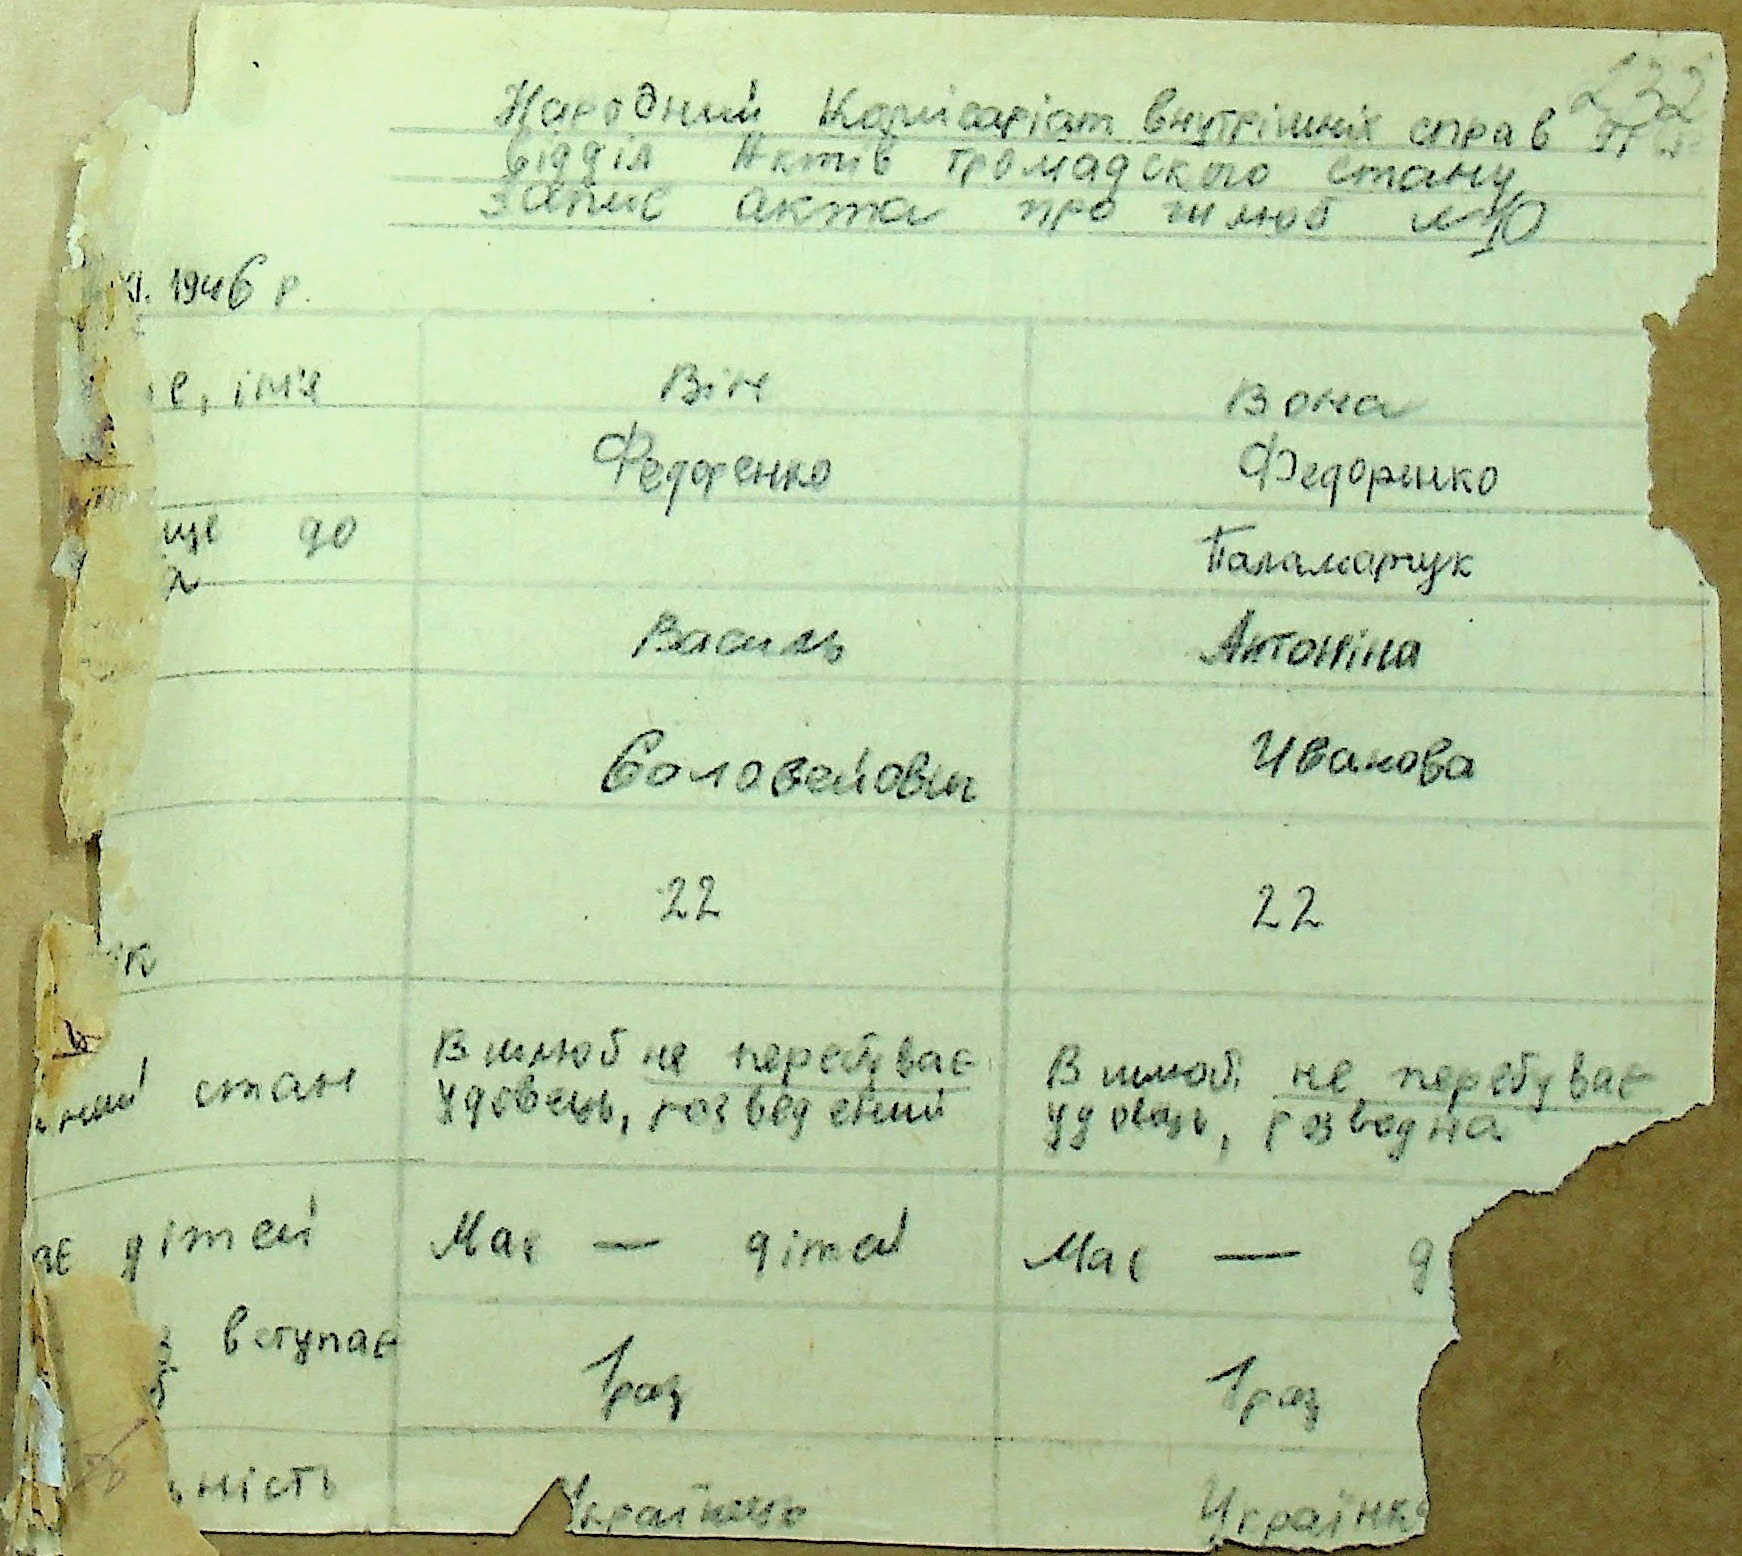 232
Народний Комісаріат внутрішніх справ
Відділ Актів громадского стану
Запис акта про шлюб №10
1946 р.
е, ім'я Він Вона
Федоренко Федоренко
ще до Паламарчук
Василь Антоніна
Соловейович Иванова
22 22
ік
ний стан В шлюб не перебуває В шлюб не перебуває
удовець, розведений удовець, розведна
ає дітей Має — дітей Має — д
вступає 1 раз 1 раз
ність Українець Українка